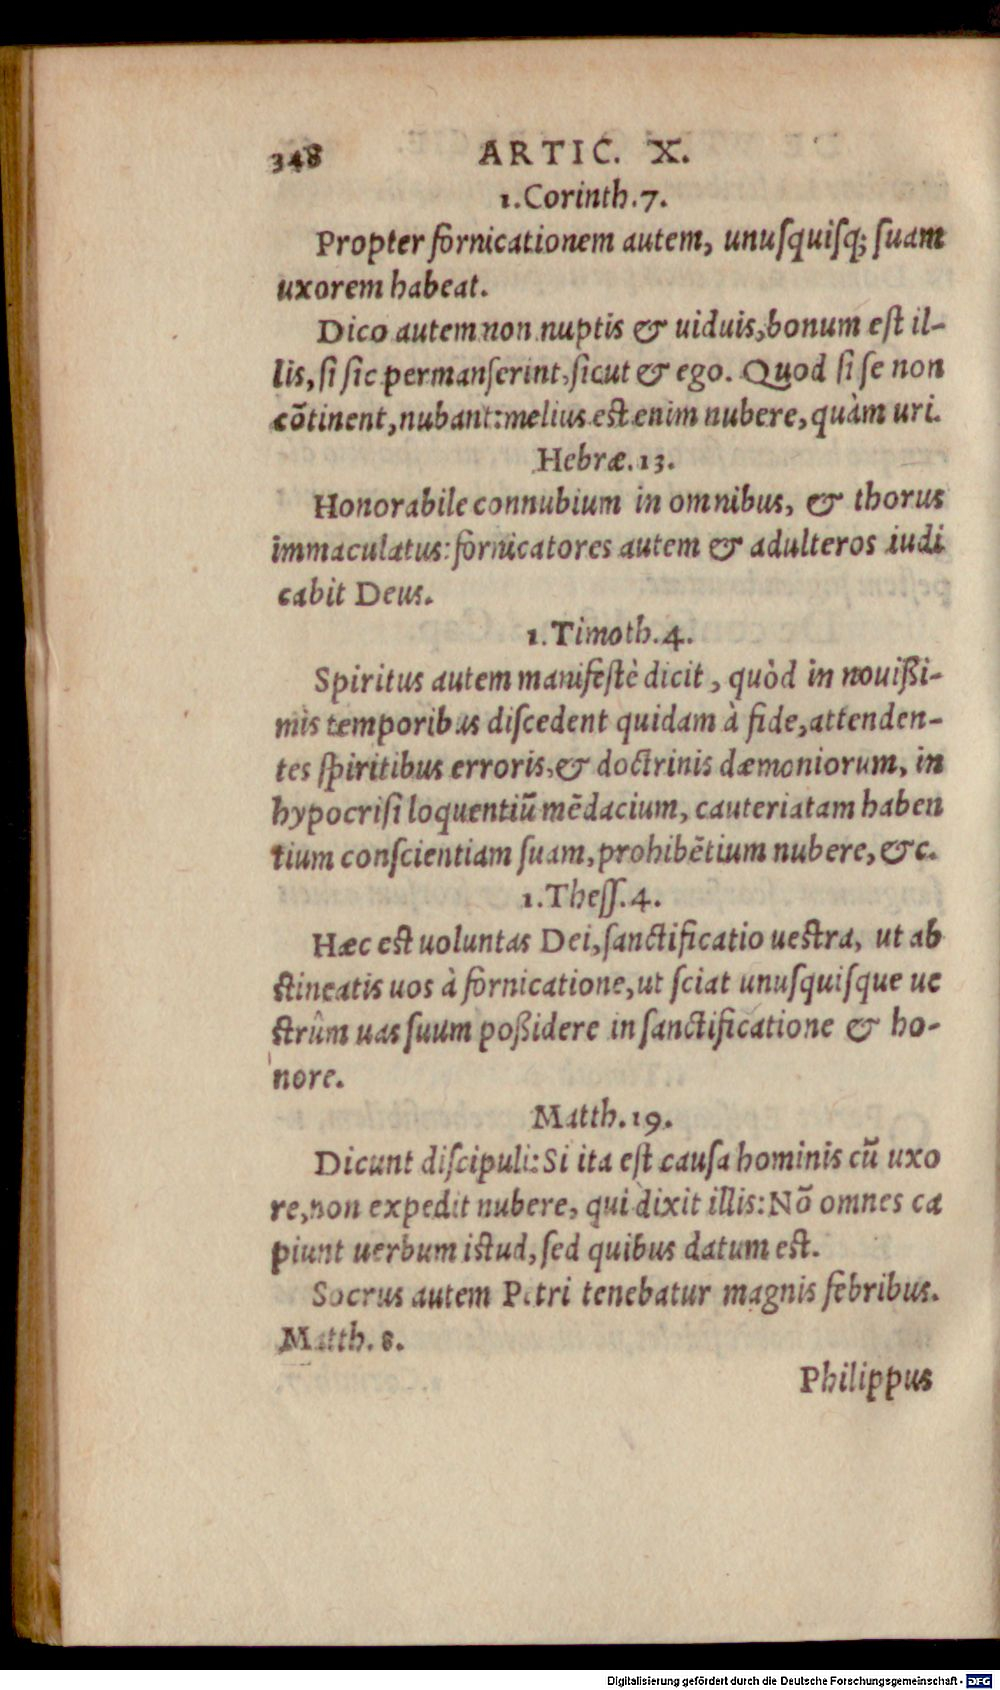 348 ARTIC. X.
1.Corinth.7.
Propter fornicationem autem, unuſquiſq; ſuam
uxorem habeat.
Dico autem non nuptis & uiduis, bonum eſt il-
lis, ſi ſic permanſerint, ſicut & ego. Quod ſi ſe non
cõtinent, nubant: melius eſt enim nubere, quàm uri.
Hebræ.13.
Honorabile connubium in omnibus, & thorus
immaculatus: fornicatores autem & adulteros iudi
cabit Deus.
1.Timoth.4.
Spiritus autem manifeſtè dicit, quòd in nouißi-
mis temporibus diſcedent quidam à fide, attenden-
tes ſpiritibus erroris, & doctrinis dæmoniorum, in
hypocriſi loquentiũ mẽdacium, cauteriatam haben
tium conſcientiam ſuam, prohibẽtium nubere, &c.
1.Theſſ.4.
Hæc eſt uoluntas Dei, ſanctificatio ueſtra, ut ab
ſtineatis uos à fornicatione, ut ſciat unuſquiſque ue
ſtrûm uas ſuum poßidere in ſanctificatione & ho-
nore.
Matth.19.
Dicunt diſcipuli: Si ita eſt cauſa hominis cũ uxo
re, non expedit nubere, qui dixit illis: Nõ omnes ca
piunt uerbum iſtud, ſed quibus datum eſt.
Socrus autem Petri tenebatur magnis febribus.
Matth. 8.
Philippus
Digitalisierung gefördert durch die Deutsche Forschungsgemeinschaft - DFG